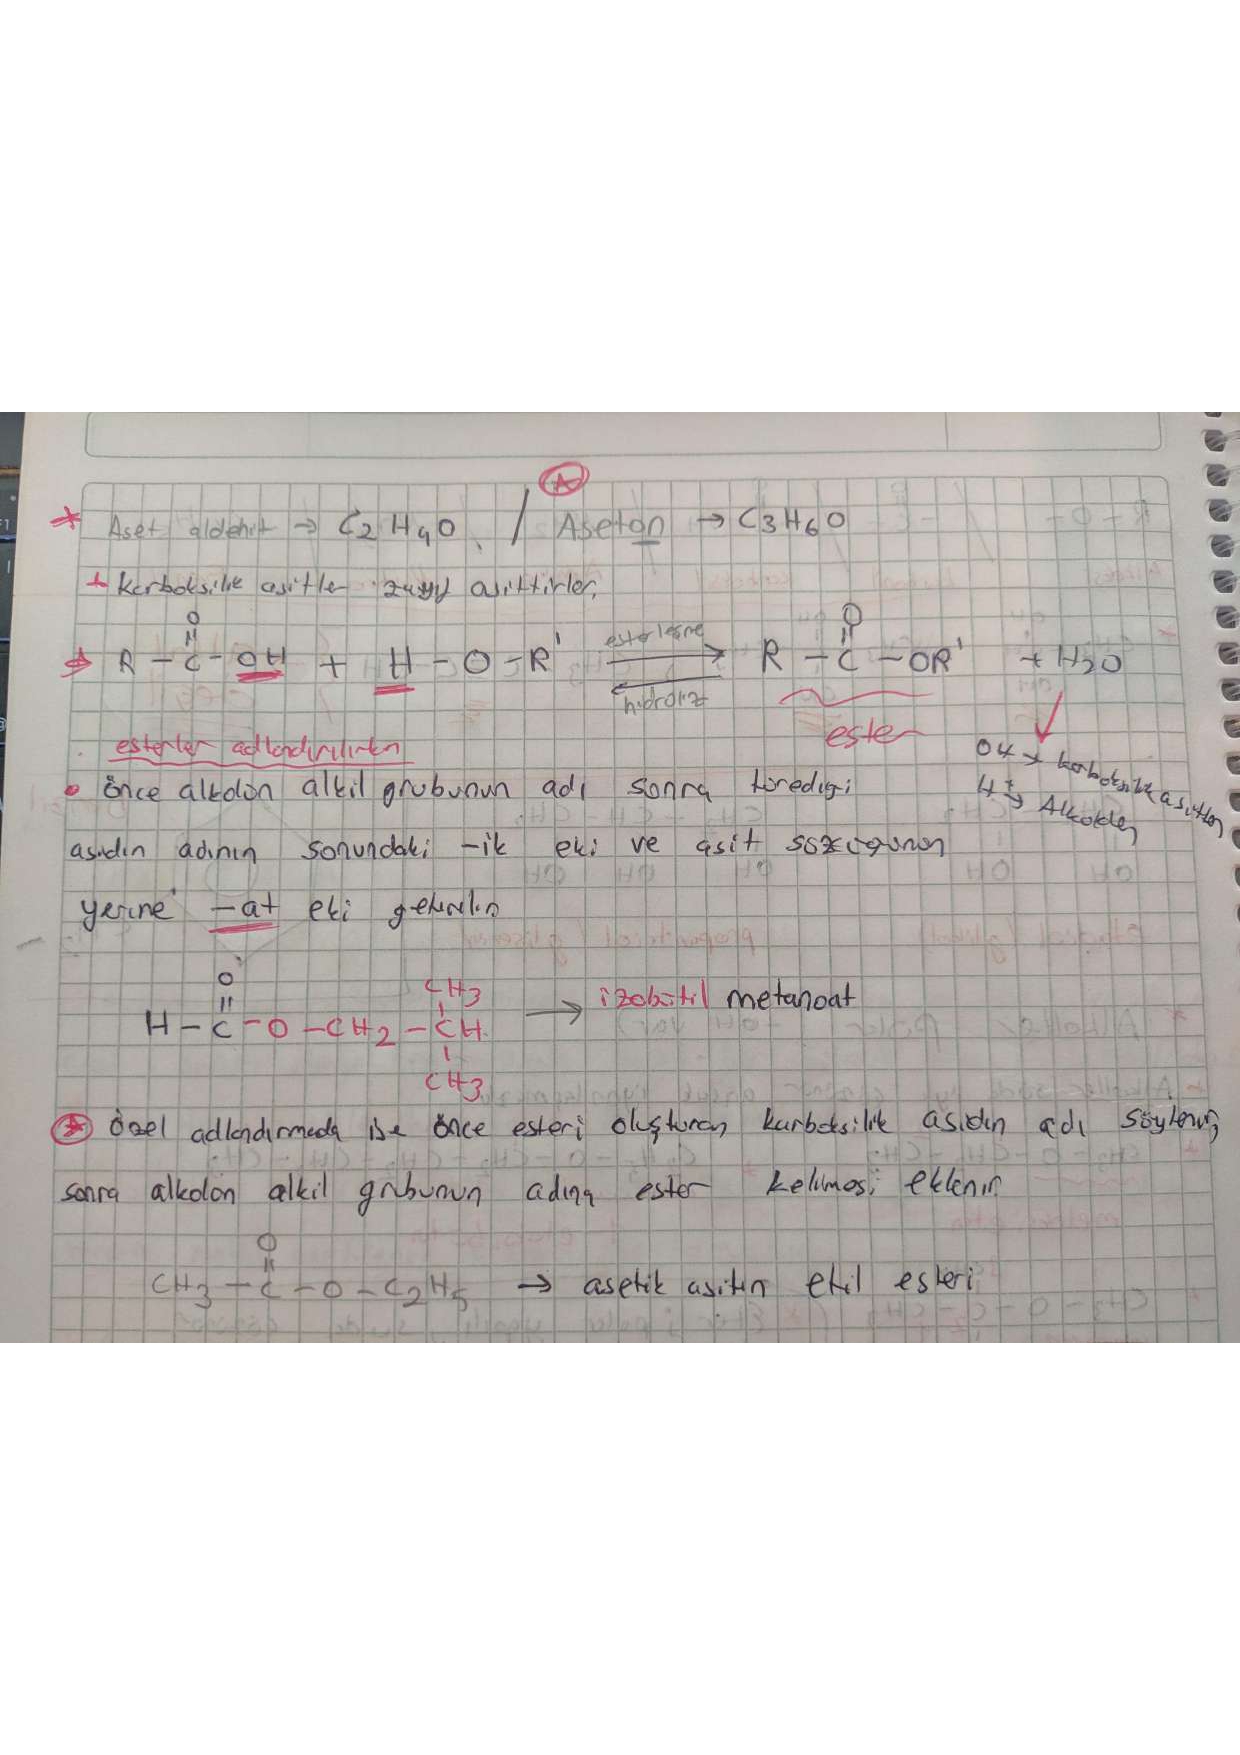 A
* Aset aldehit → C2H4O / Aseton → C3H6O
+ Karboksilik asitler zayıf asittirler.
O
O
R – C – OH + H – O – R' esterleşme R – C – OR' + H2O
hidroliz
ester
esterler adlandırılırken
OH → karboksilik asitten
H → Alkolden
• Önce alkolün alkil grubunun adı sonra türediği
asidin adının sonundaki -ik eki ve asit sözcüğünün
yerine -at eki getirilir
O
CH3
H – C – O – CH2 – CH → izobütil metanoat
CH3
* Özel adlandırmada ise önce esteri oluşturan karboksilik asidin adı söylenir,
sonra alkolün alkil grubunun adına ester kelimesi eklenir
O
CH3 – C – O – C2H5 → asetik asitin etil esteri